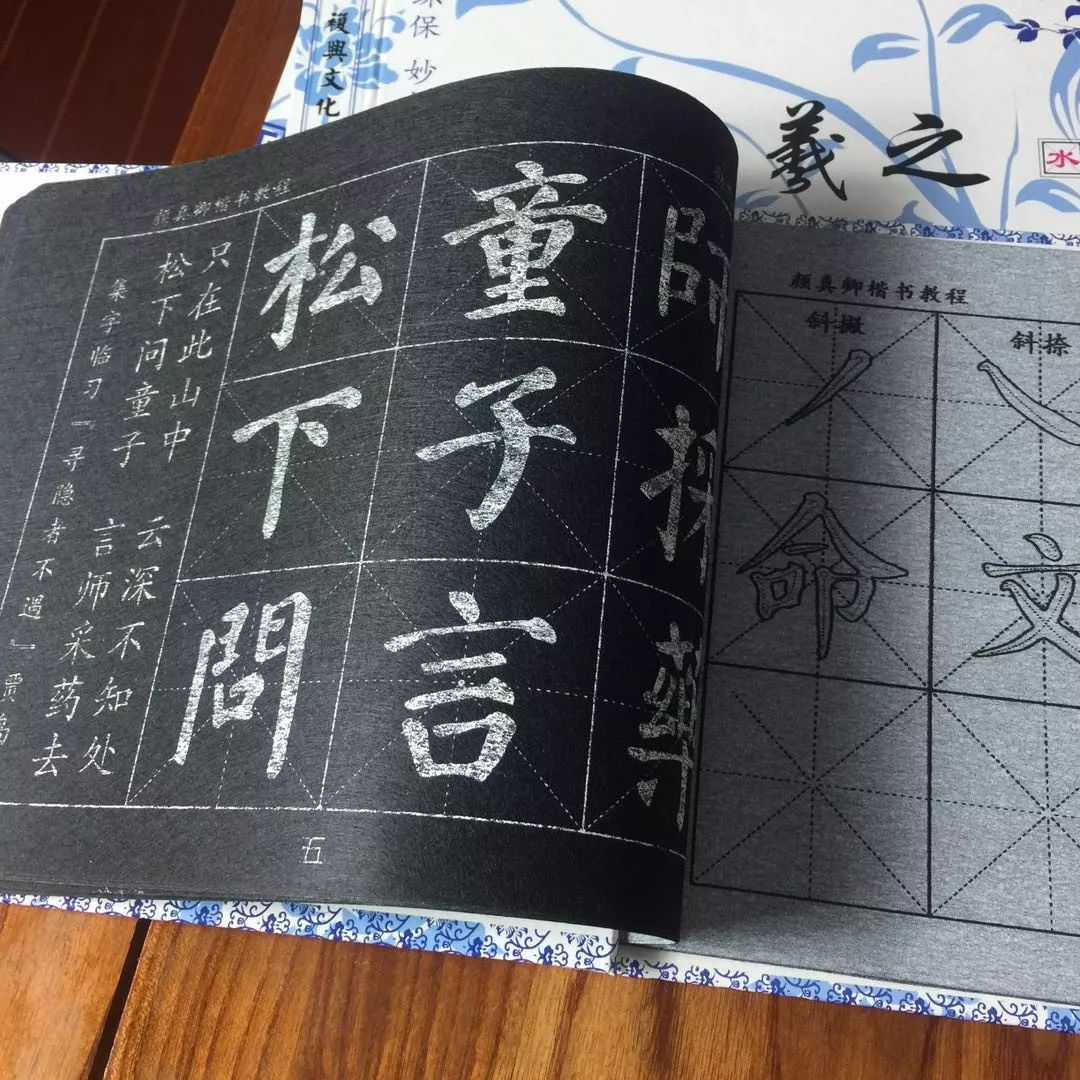 復興文化
保 妙
羲之
水
颜真卿楷书教程
集字临习『寻隐者不遇』贾岛
松下问童子 言师采药去
只在此山中 云深不知处
松下問
童子言
師採藥
五
颜真卿楷书教程
斜撇
命
斜捺
文